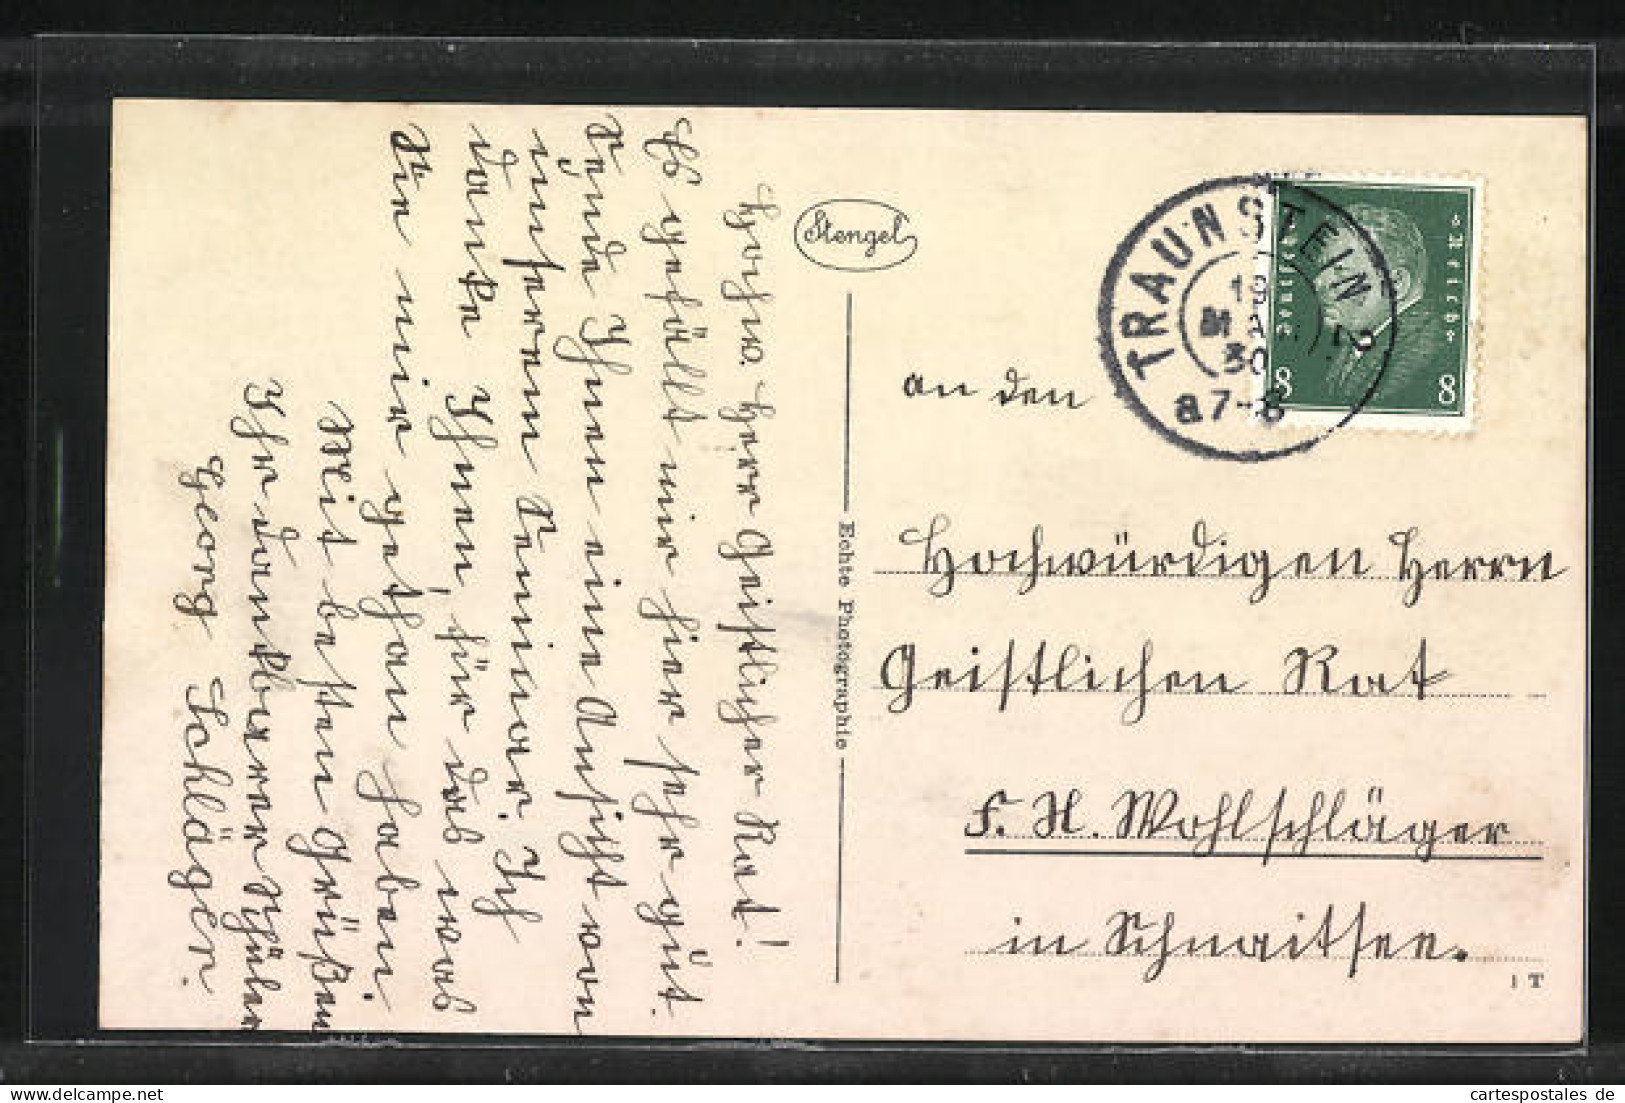 Hochw. Herr Geistlicher Rat!
Es gefällt mir hier sehr gut.
Sende Ihnen eine Ansicht von
unserem Seminar. Ich
danke Ihnen, für das was
Sie mir gethan haben
Mit besten Grüßen
Ihr dankbarer Schüler
Georg Schläger.
Stengel
Echte Photographie
TRAUNSTEIN 2
19
MÄR
30
8 7-8
Deutsches Reich
8 8
An den
Hochwürdigen Herrn
Geistlichen Rat
F. H. Wohlschläger
in Schnaitsee.
1 T
cartespostales de